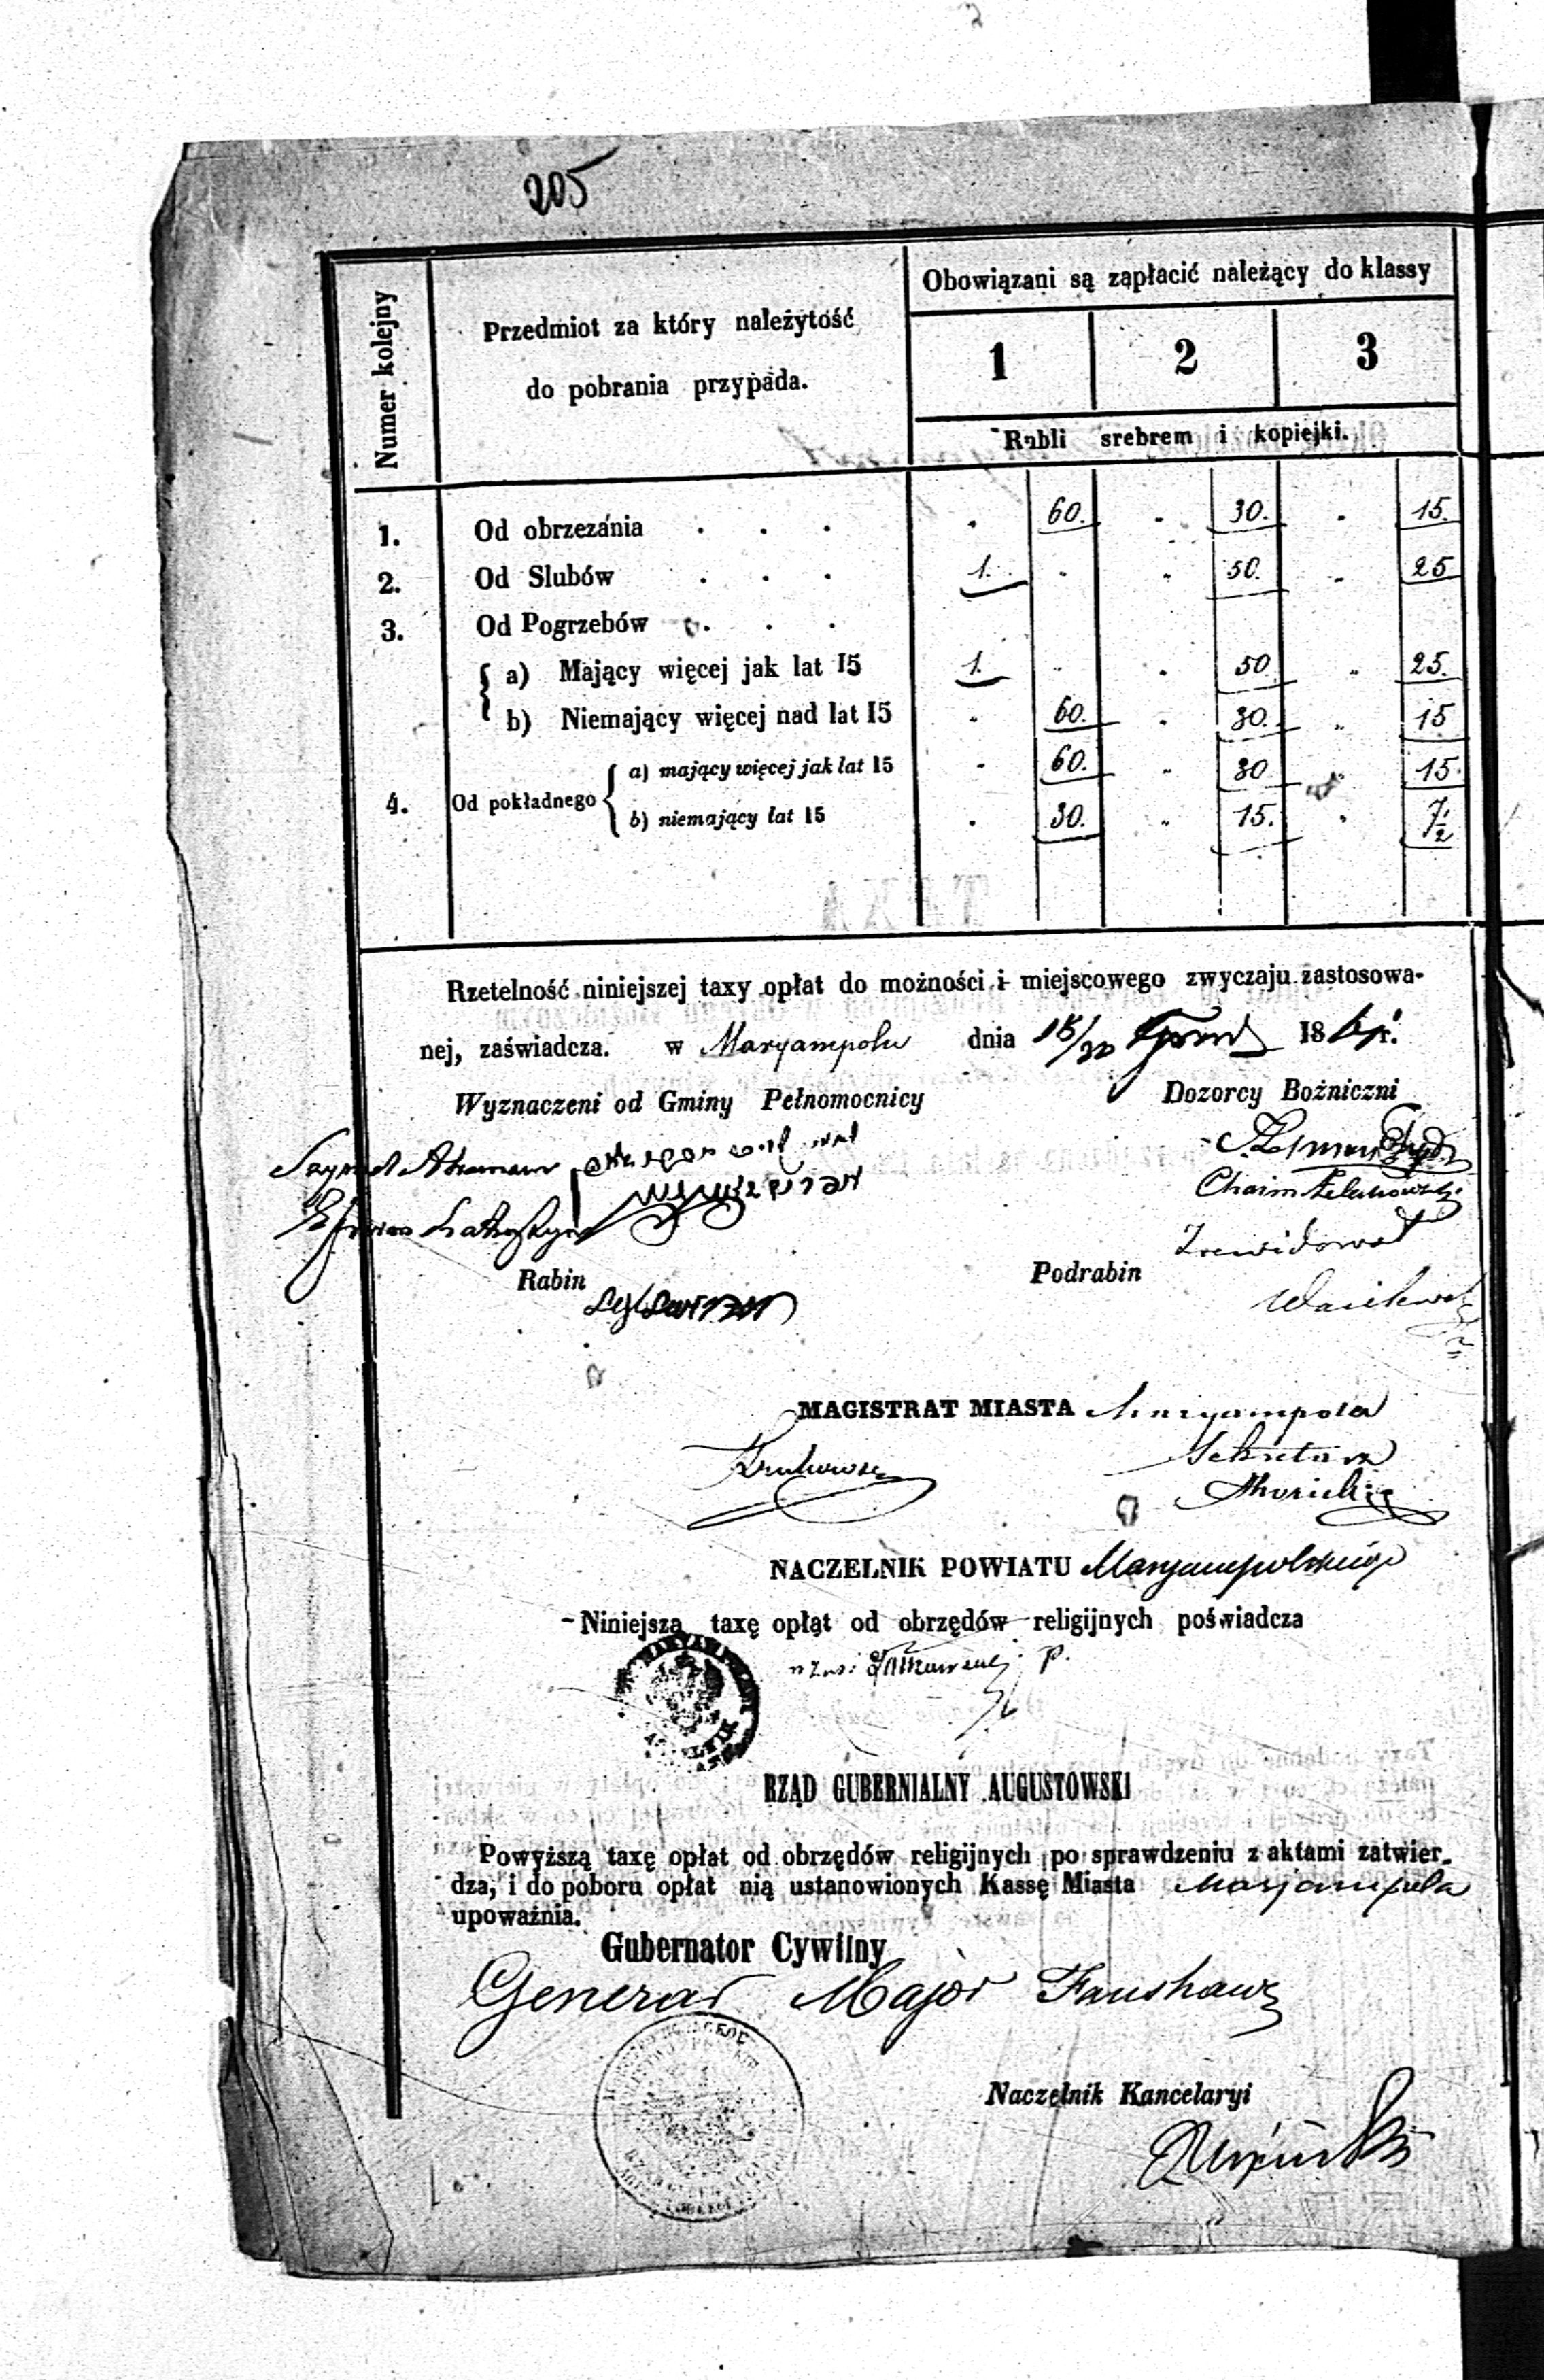 205
Numer kolejny
Przedmiot za który należytość
do pobrania przypada.
Obowiązani są zapłacić należący do klassy
1 2 3
Rubli srebrem i kopiejki.
1. Od obrzezania . . . . 60. " 30. " 15.
2. Od Slubów . . . 1. . " 50. " 25
3. Od Pogrzebów . . .
a) Mający więcej jak lat 15 1. " . 50 " 25.
b) Niemający więcej nad lat 15 " 60. . 30. " 15
4. Od pokładnego
a) mający więcej jak lat 15 " 60. " 30 " 15.
b) niemający lat 15 . 30. " 15. " 7½
TAXA
Rzetelność niniejszej taxy opłat do możności i miejscowego zwyczaju zastosowa-
nej, zaświadcza. w Maryampolu dnia 18/30 18 r.
Wyznaczeni od Gminy Pełnomocnicy
Dozorcy Bożniczni
Chaim
Zrewidował
Rabin
Podrabin
MAGISTRAT MIASTA Maryampola
Sekretarz
NACZELNIK POWIATU Maryampolskiego
Niniejszą taxę opłat od obrzędów religijnych poświadcza
RZĄD GUBERNIALNY AUGUSTOWSKI
Powyższą taxę opłat od obrzędów religijnych po sprawdzeniu z aktami zatwier-
dza, i do poboru opłat nią ustanowionych Kassę Miasta Maryampola
upoważnia.
Gubernator Cywilny
Generał Major Fanshawe
Naczelnik Kancelaryi